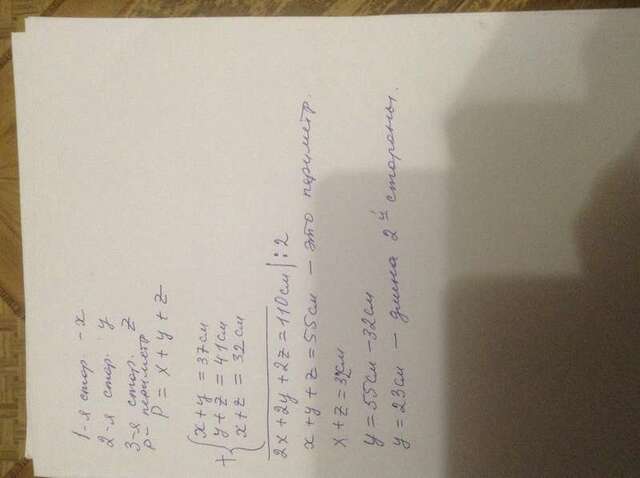 1-я стор. - x
2-я стор. y
3-я стор. z
P - периметр
P = x + y + z
+ { x + y = 37 см
y + z = 41 см
x + z = 32 см
2x + 2y + 2z = 110 см | : 2
x + y + z = 55 см — это периметр.
x + z = 32 см
y = 55 см - 32 см
y = 23 см — длина 2й стороны.